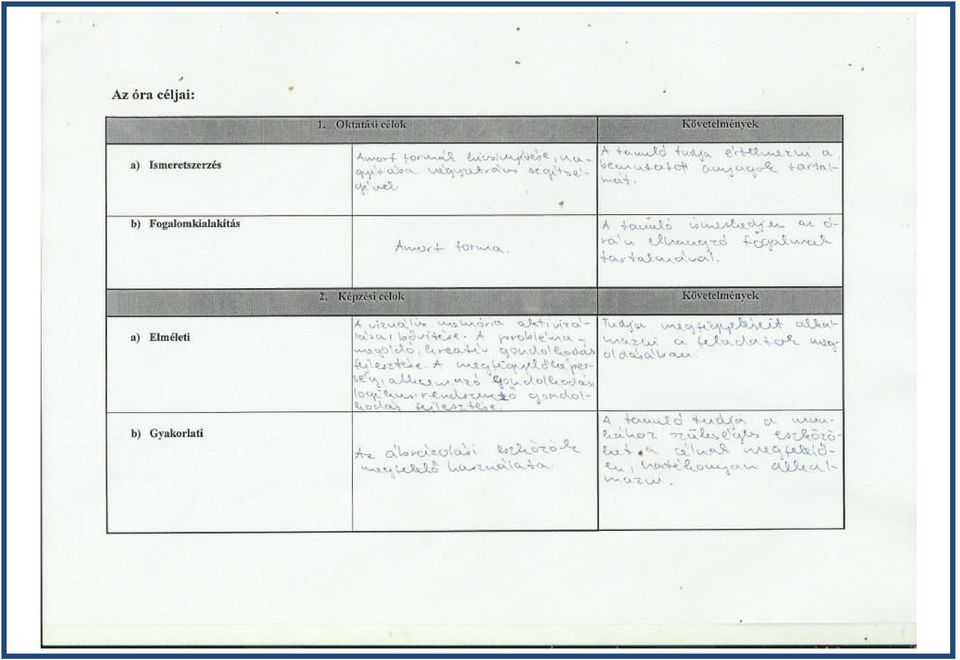 Az óra céljai:
1. Oktatási célok
Követelmények
a) Ismeretszerzés
Amorf formák kicsinyítése, na-
gyítása négyzetrács segítsé-
gével.
A tanuló tudja értelmezni a
bemutatott anyagok tartal-
mát.
b) Fogalomkialakítás
Amorf forma.
A tanuló ismerkedjen az ó-
rán elhangzó fogalmak
tartalmával.
2. Képzési célok
Követelmények
a) Elméleti
A vizuális memória aktivizá-
lása, bővítése. A probléma-
megoldó, kreatív gondolkodás
fejlesztése. A megfigyelőképes-
ség, alkalmazó gondolkodás,
logikus, rendszerező gondol-
kodás fejlesztése.
Tudja megfigyeléseit alkal-
mazni a feladatok meg-
oldásában.
b) Gyakorlati
Az ábrázolási eszközök
megfelelő használata.
A tanuló tudja a mun-
kához szükséges eszközö-
ket a célnak megfelelő-
en, hatékonyan alkal-
mazni.